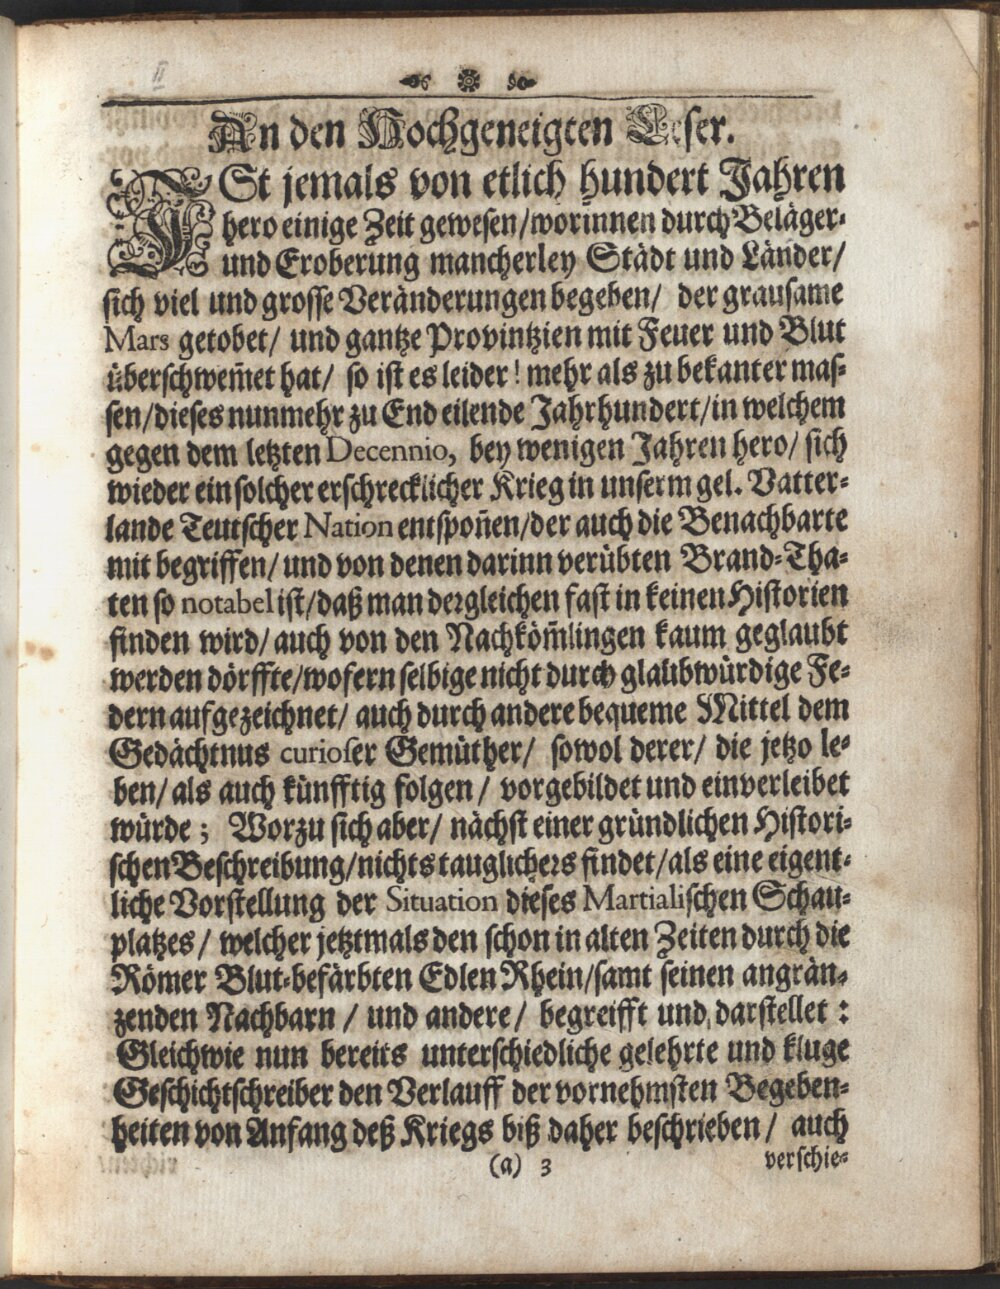 II
An den Hochgeneigten Leser.
ISt jemals von etlich hundert Jahren
hero einige Zeit gewesen/worinnen durch Beläger-
und Eroberung mancherley Städt und Länder/
sich viel und grosse Veränderungen begeben/ der grausame
Mars getobet/ und gantze Provintzien mit Feuer und Blut
überschwem̃et hat/ so ist es leider! mehr als zu bekanter mas-
sen/dieses nunmehr zu End eilende Jahrhundert/in welchem
gegen dem letzten Decennio, bey wenigen Jahren hero/ sich
wieder ein solcher erschrecklicher Krieg in unserm gel. Vatter-
lande Teutscher Nation entspoñen/der auch die Benachbarte
mit begriffen/ und von denen darinn verübten Brand-Tha-
ten so notabel ist/daß man dergleichen fast in keinen Historien
finden wird/ auch von den Nachköm̃lingen kaum geglaubt
werden dörffte/wofern selbige nicht durch glaubwürdige Fe-
dern aufgezeichnet/ auch durch andere bequeme Mittel dem
Gedächtnus curioser Gemüther/ sowol derer/ die jetzo le-
ben/ als auch künfftig folgen / vorgebildet und einverleibet
würde ; Worzu sich aber/ nächst einer gründlichen Histori-
schen Beschreibung/nichts tauglichers findet/als eine eigent-
liche Vorstellung der Situation dieses Martialischen Schau-
platzes / welcher jetztmals den schon in alten Zeiten durch die
Römer Blut-befärbten Edlen Rhein/samt seinen angrän-
zenden Nachbarn / und andere / begreifft und darstellet :
Gleichwie nun bereits unterschiedliche gelehrte und kluge
Geschichtschreiber den Verlauff der vornehmsten Begeben-
heiten von Anfang deß Kriegs biß daher beschrieben / auch
(a) 3 verschie-